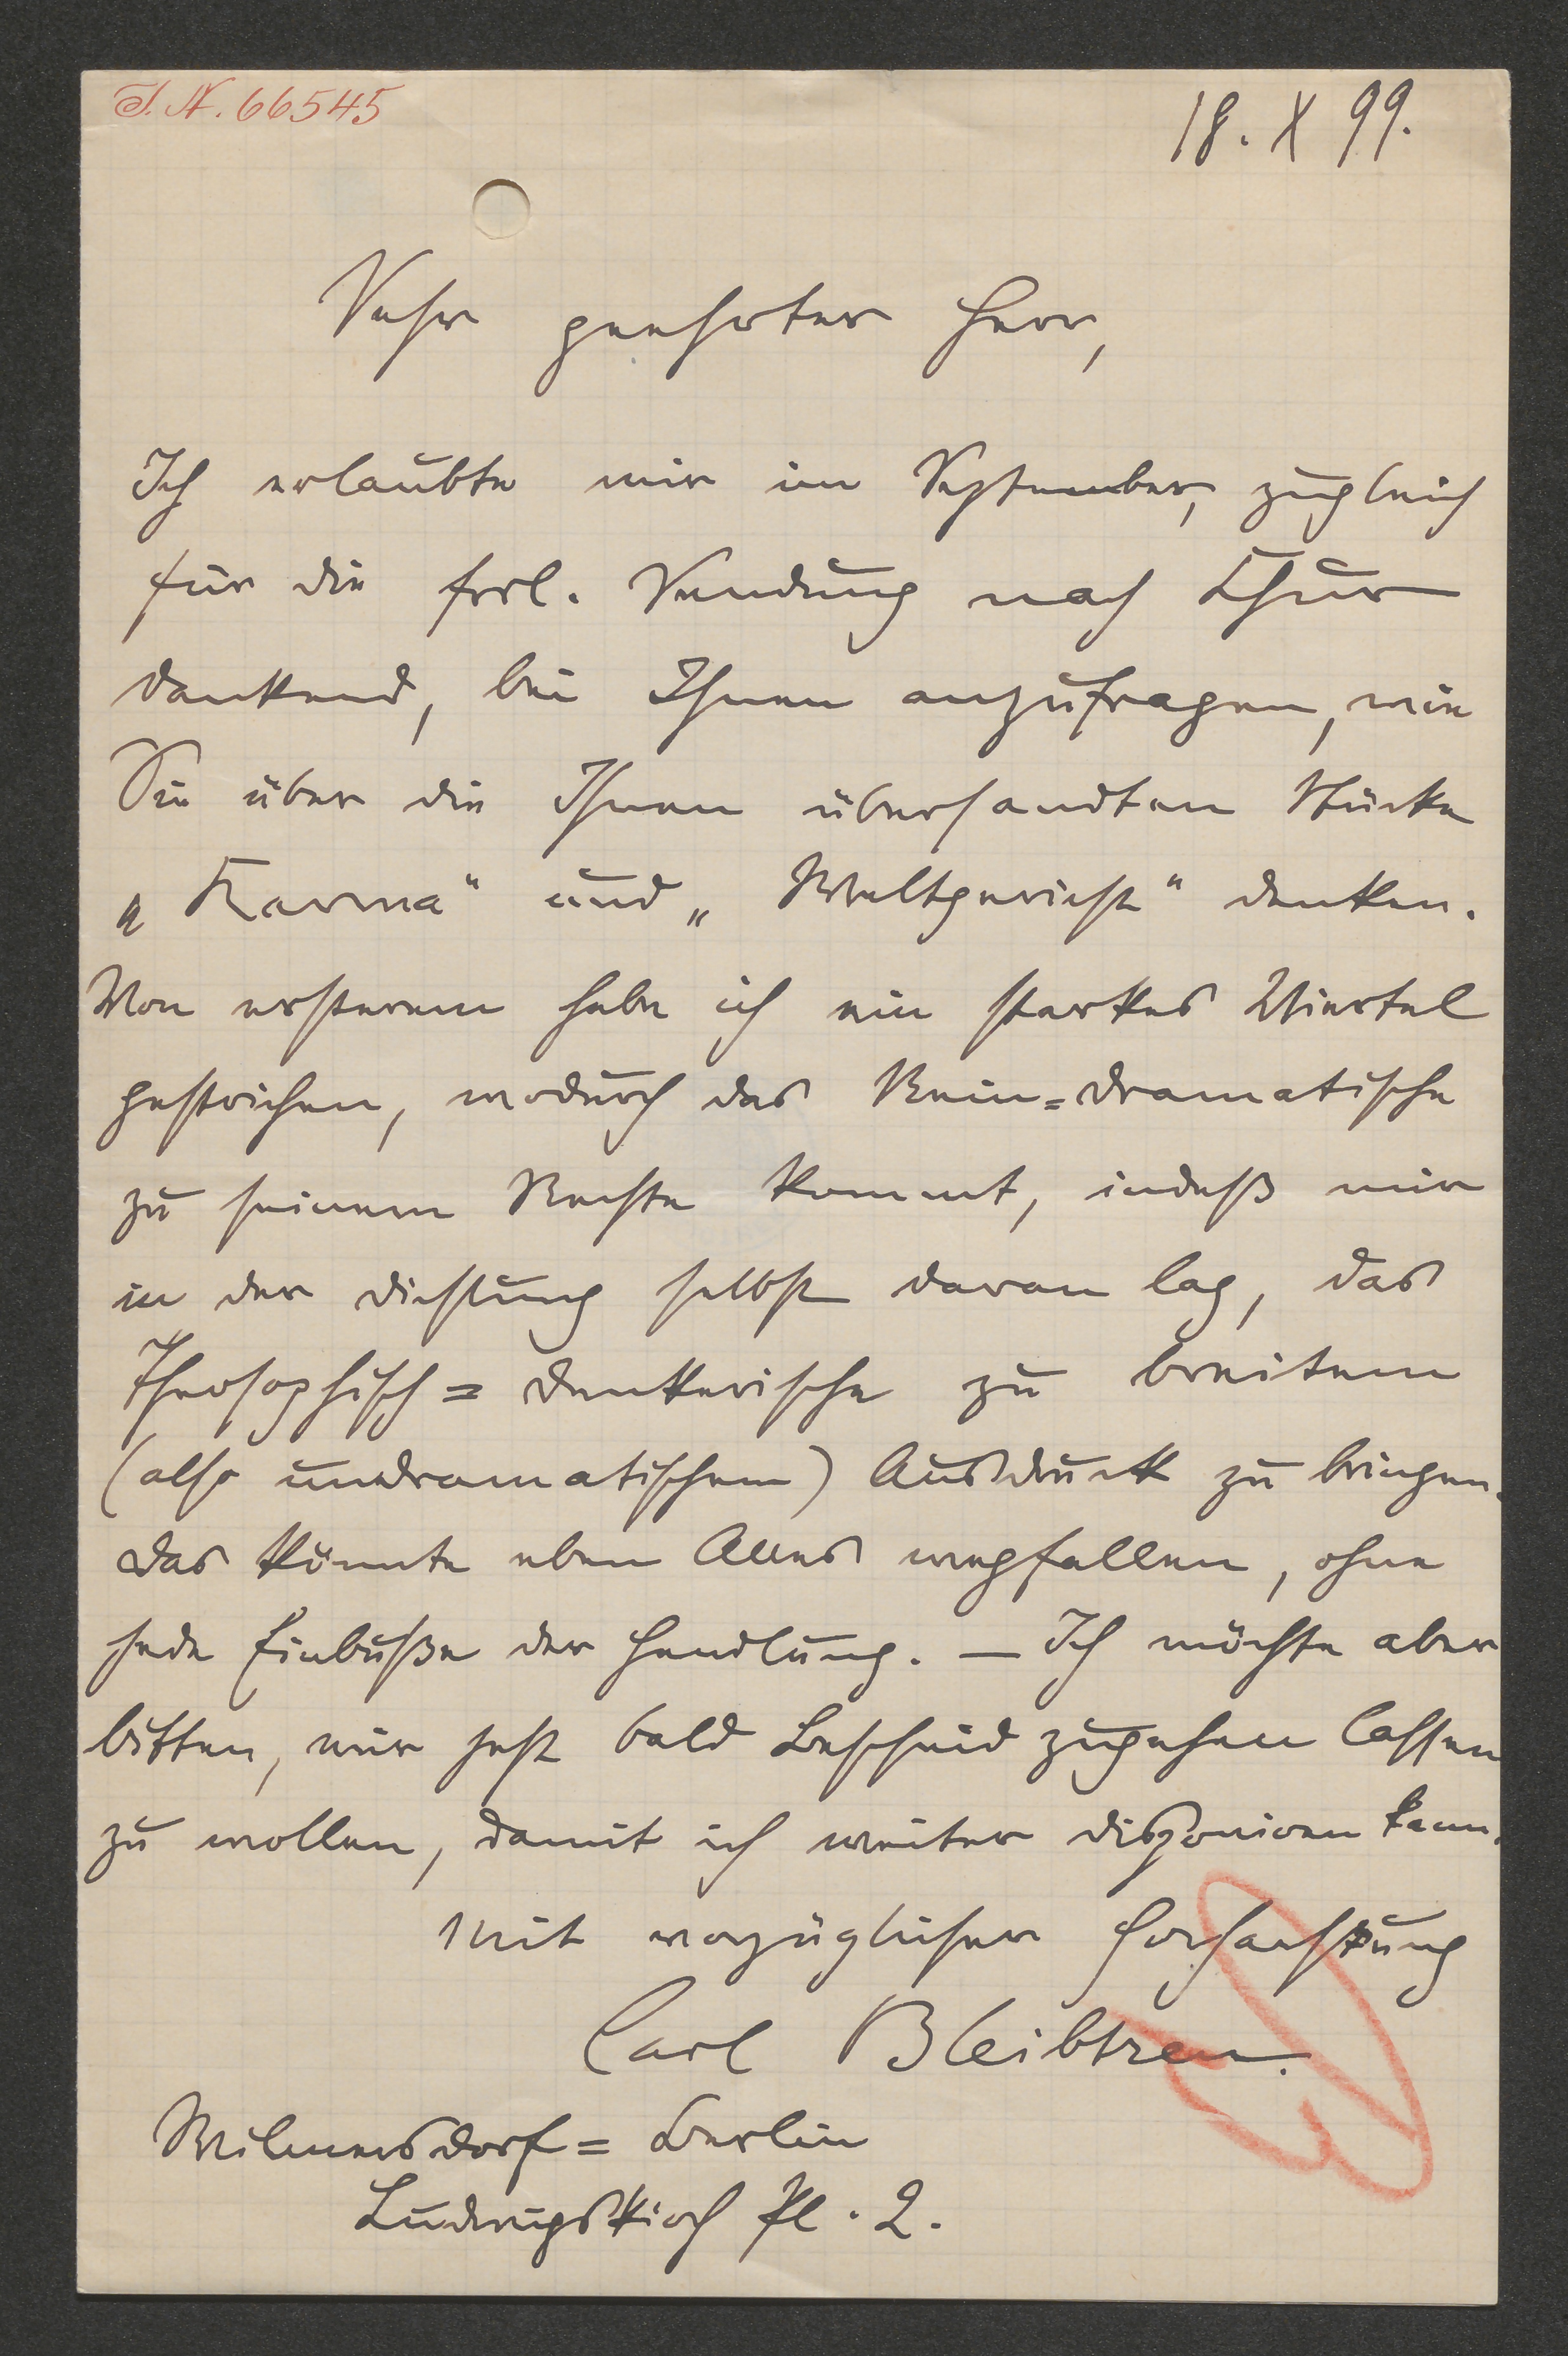 I. N. 66545
18. X 99.
Sehr geehrter Herr,
Ich erlaubte mir im September, zugleich
für die frdl. Sendung nach Chur
dankend, bei Ihnen anzufragen, wie
Sie über die Ihnen übersandten Stücke
„Karma" und „Weltgericht" denken.
Von ersterem habe ich ein starkes Viertel
gestrichen, wodurch das Rein=dramatische
zu seinem Rechte kommt, indeß mir
in der Dichtung selbst daran lag, das
Theosophisch=denkerische zu breitem
(also undramatischem) Ausdruck zu bringen.
Das könnte eben Alles wegfallen, ohne
jede Einbuße der Handlung. — Ich möchte aber
bitten, mir jetzt bald Bescheid zugehen lassen
zu wollen, damit ich weiter disponiren kann.
Mit vorzüglicher Hochachtung
Carl Bleibtreu.
Wilmersdorf=Berlin
Ludwigskirch Pl. 2.